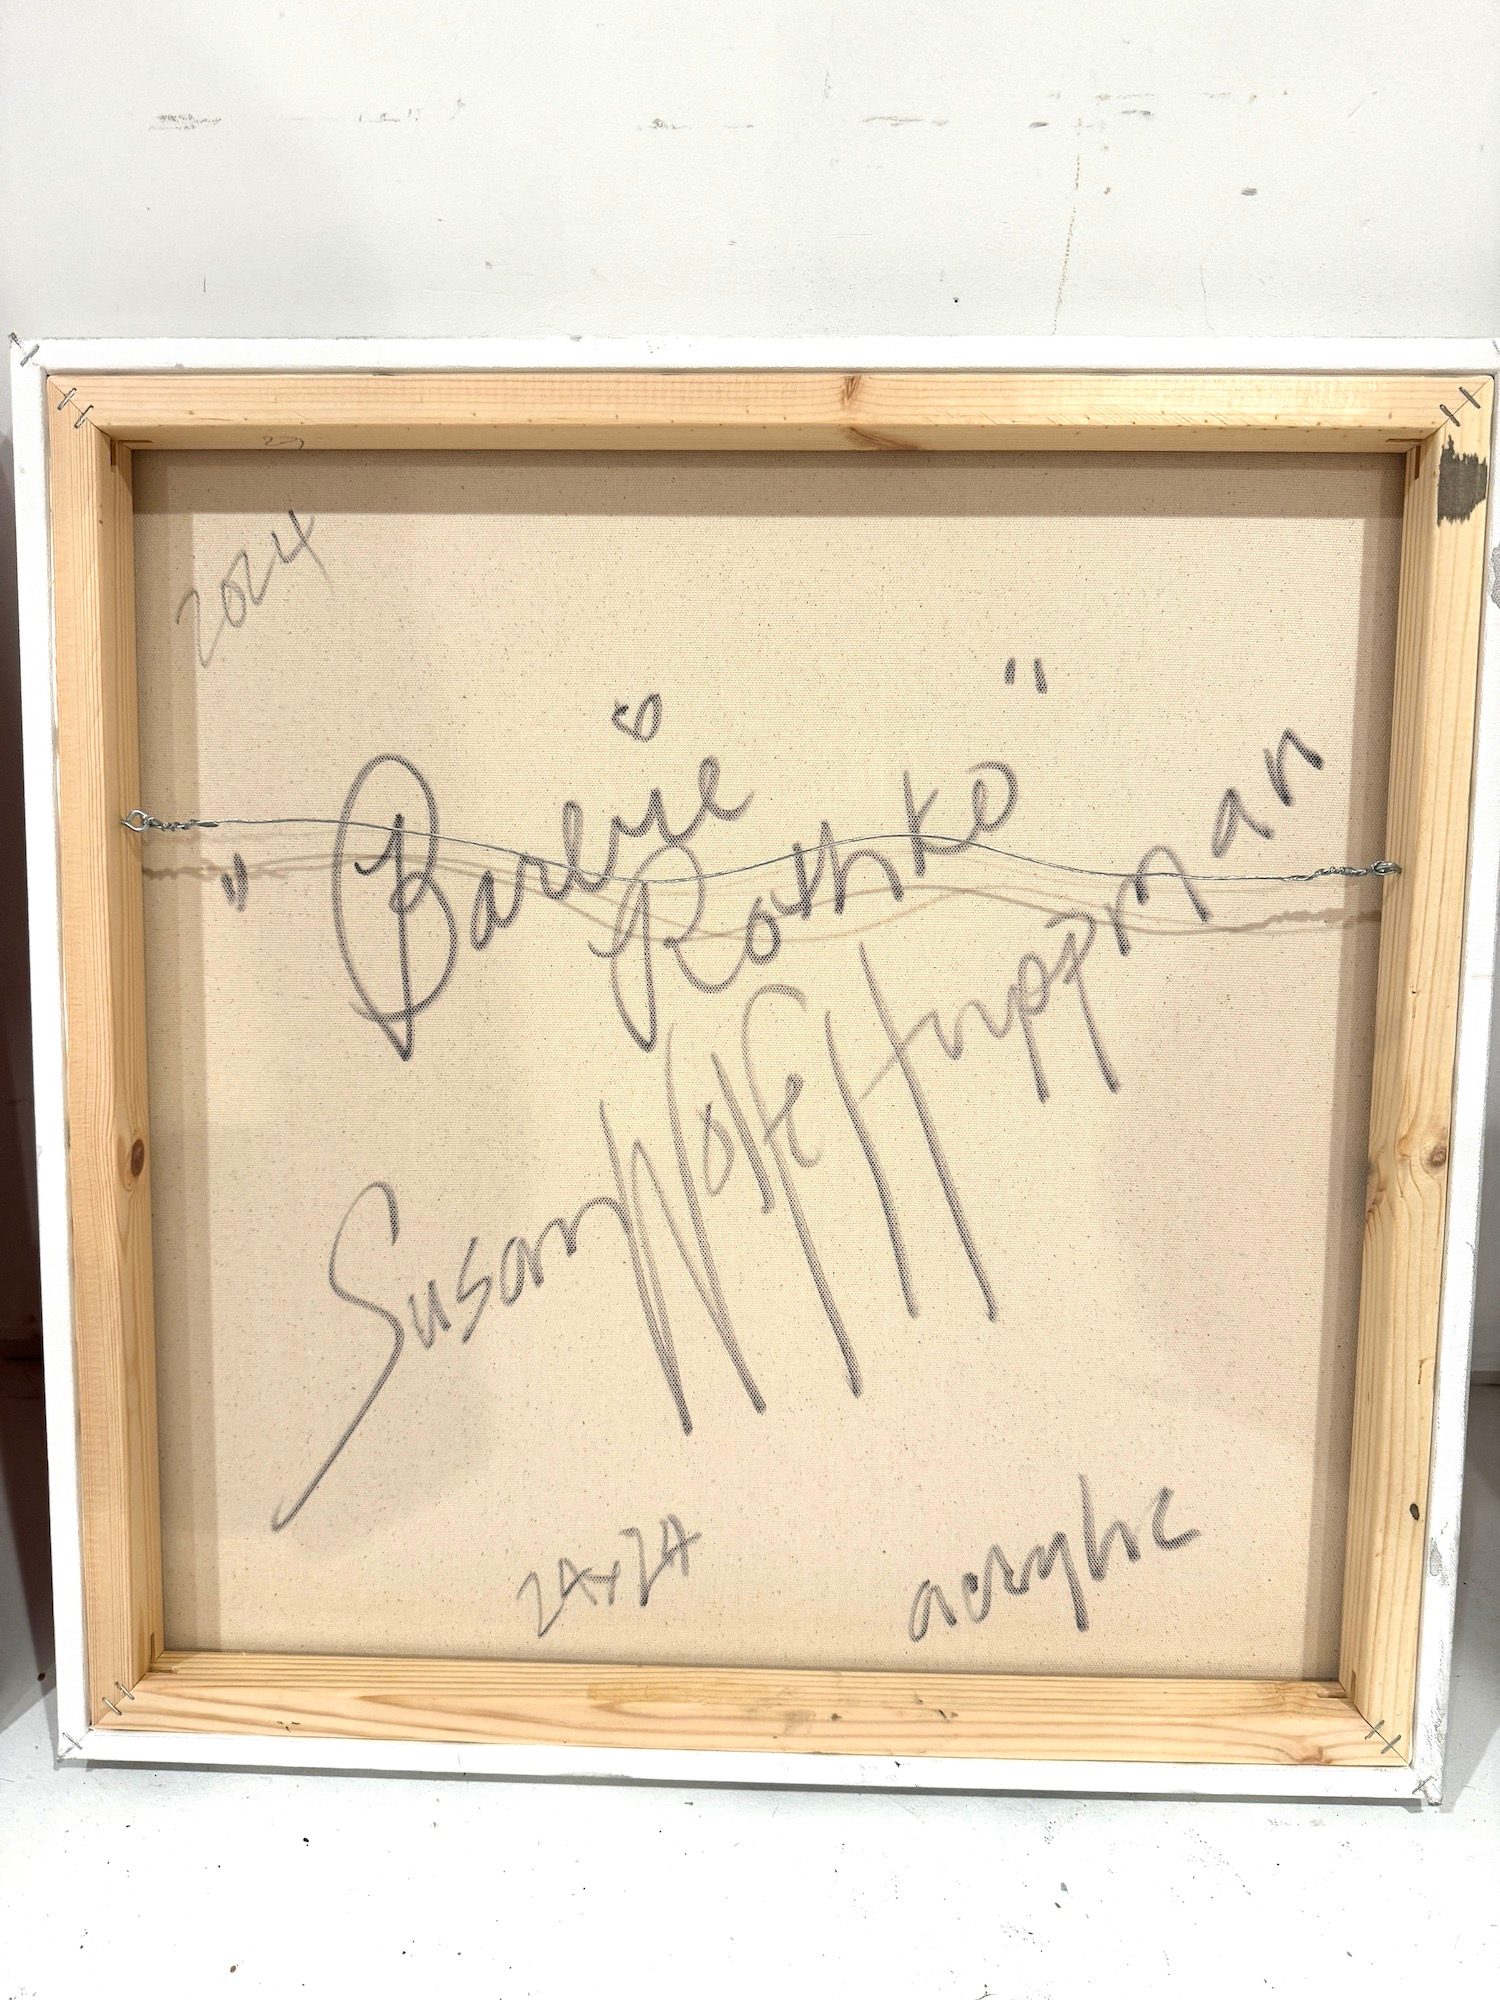 2024
"Barbie Rothko"
Susan Wolfe Huppman
24x24
acrylic